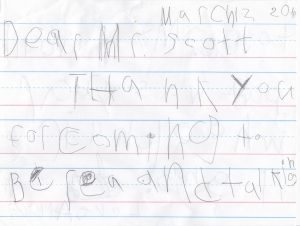 March 2
Dear Mr. Scott
Thank you
for coming to
Berea and talking